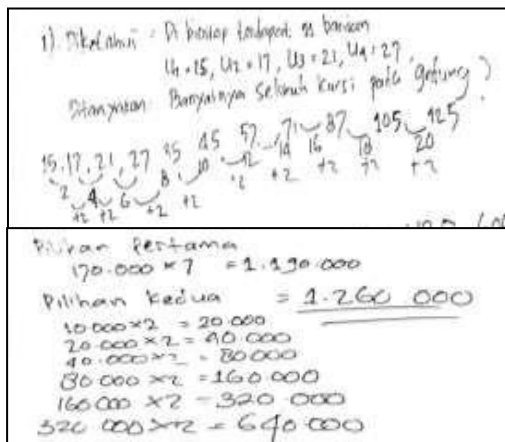 1). Diketahui : Di bioskop terdapat 95 barisan
U1 = 15, U2 = 17, U3 = 21, U4 = 27,
Ditanyakan : Banyaknya seluruh kursi pada gedung ?
15, 17, 21, 27 35 45 57 71 87 105 125
2 4 6 8 10 12 14 16 18 20
+2 +2 +2 +2 +2 +2 +2 +2 +2
Pilihan Pertama
170.000 × 7 = 1.190.000
Pilihan Kedua = 1.260 000
10 000 × 2 = 20.000
20 000 × 2 = 40.000
40.000 × 2 = 80000
80 000 × 2 = 160.000
160 000 × 2 = 320 000
320 000 × 2 = 640.000